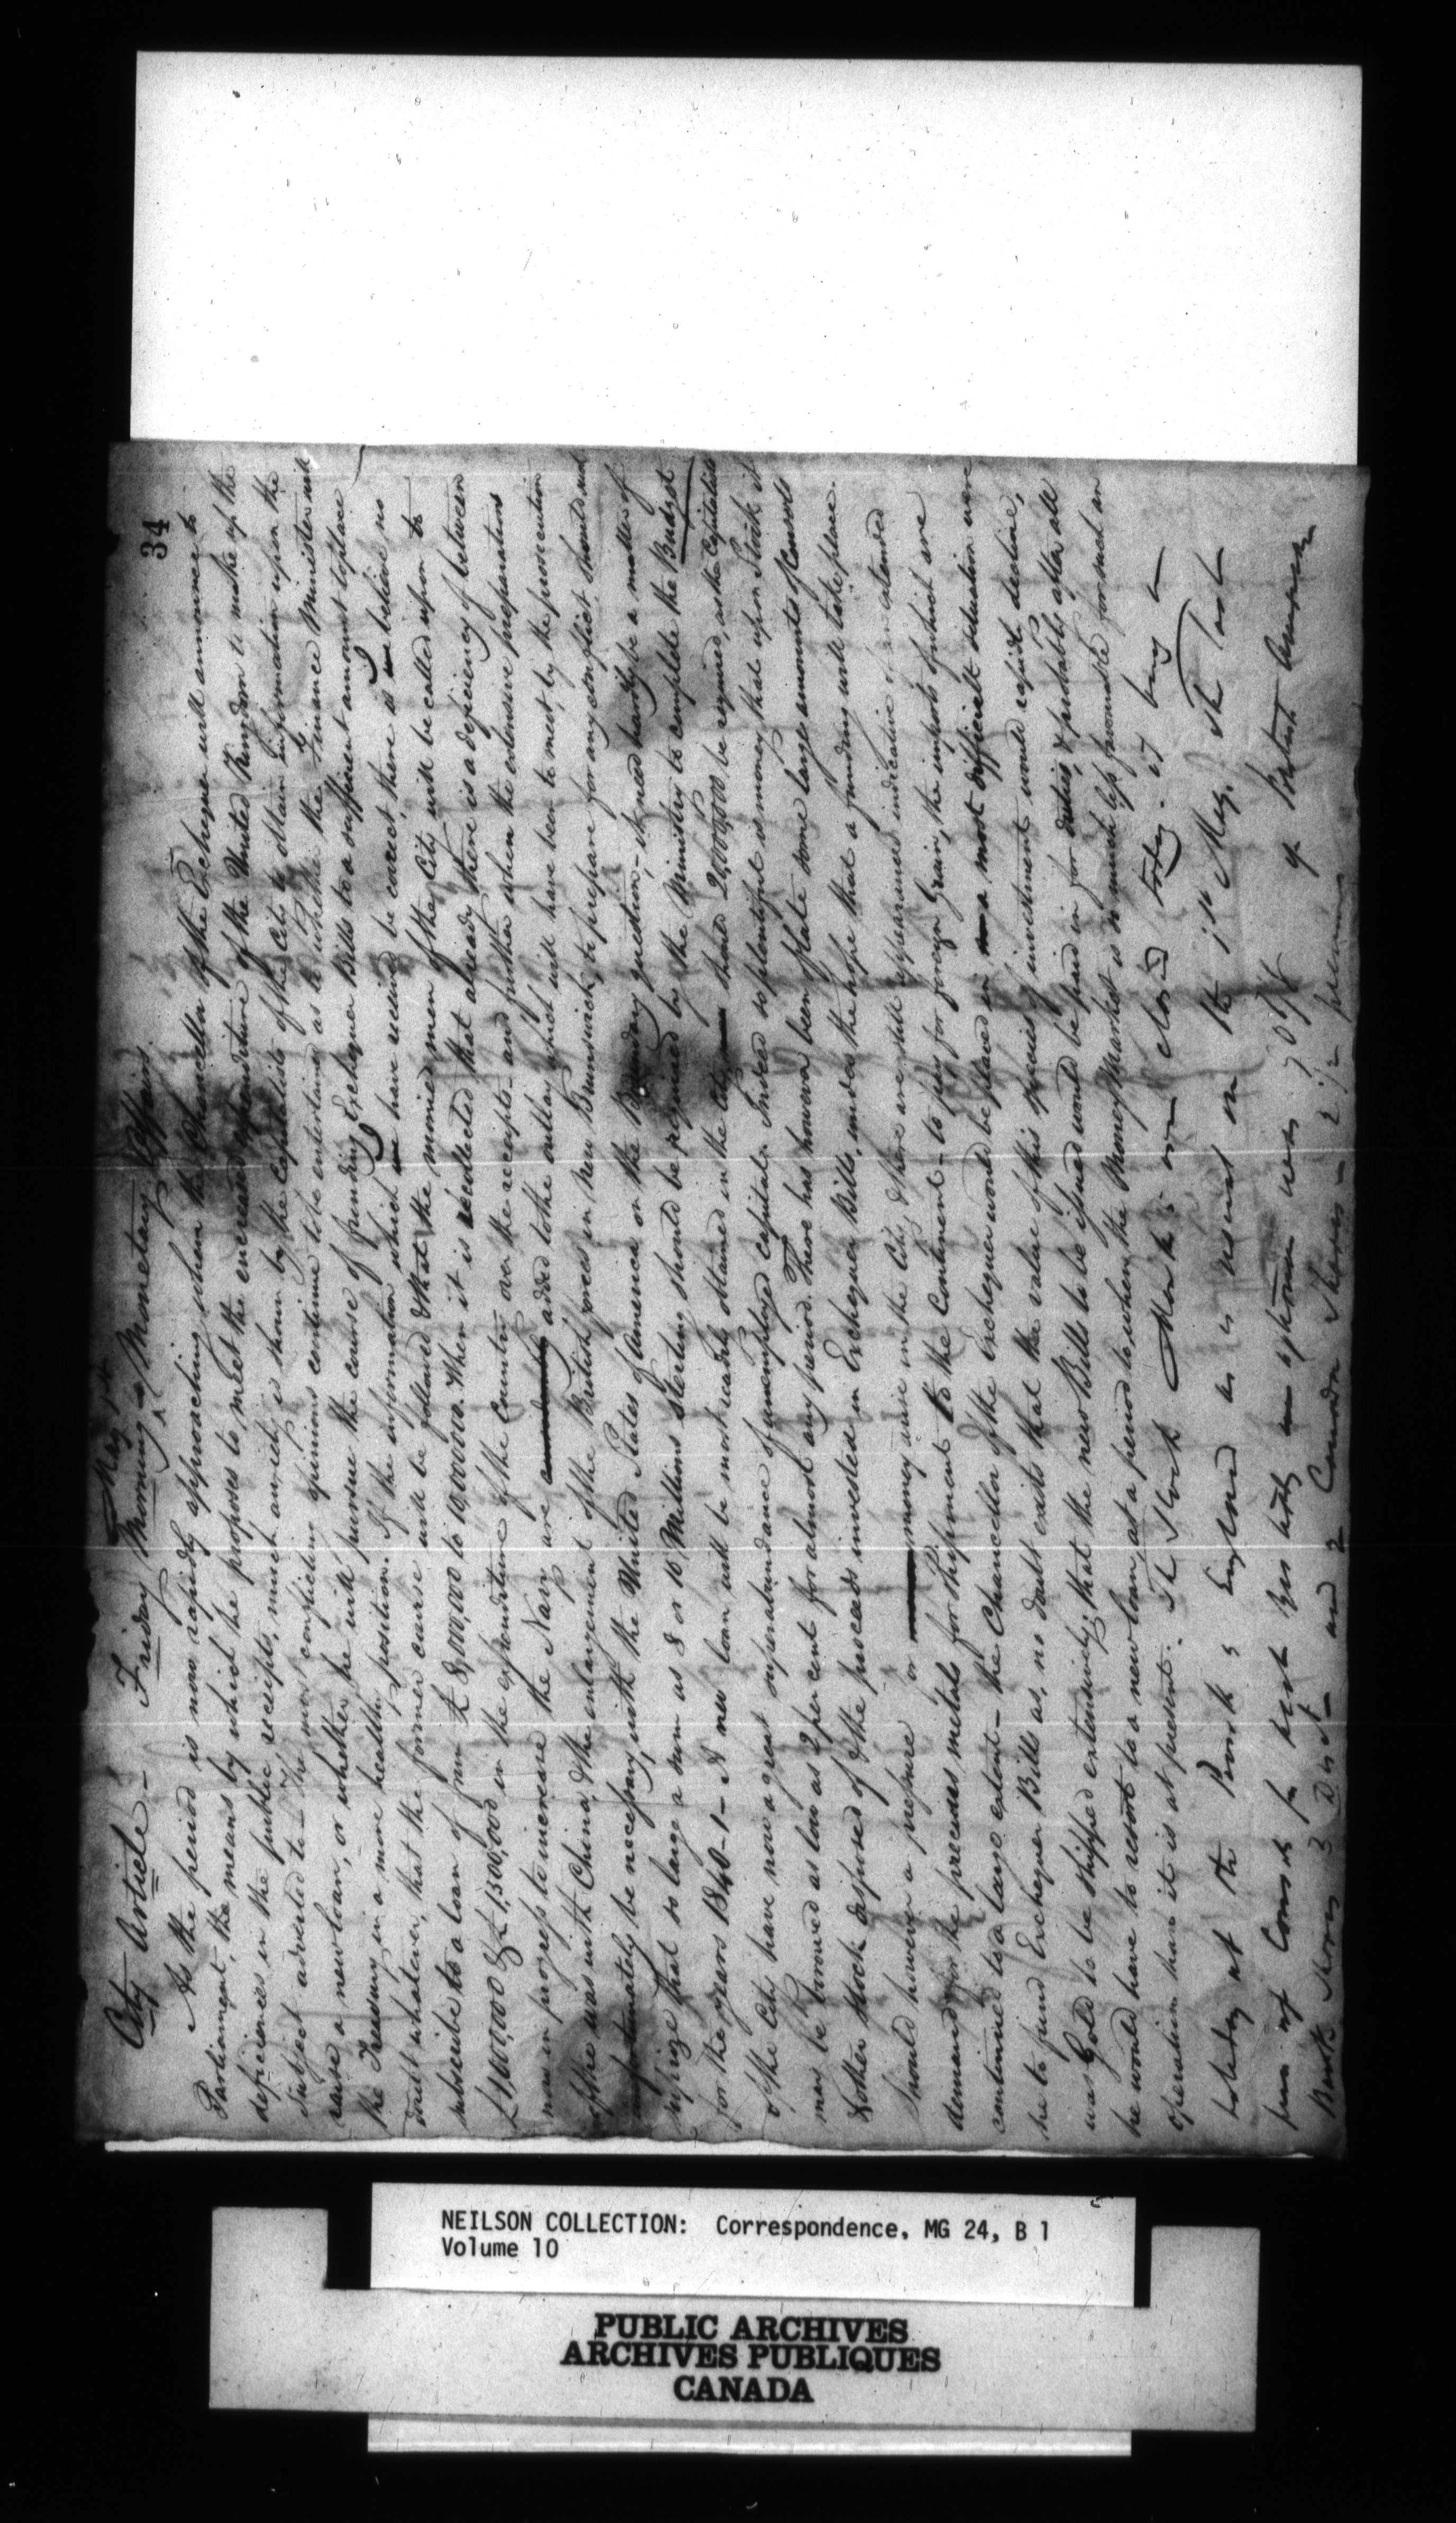 34
May 1st
City Article — Friday Morning — Monetary Affairs.
As the period is now rapidly approaching when the Chancellor of the Exchequer will announce to
Parliament, the means by which he proposes to meet the encreased expenditure of the United Kingdom & to make up the
deficiencies in the public receipts, much anxiety is shewn by the Capitalists of the City to obtain information upon the
subject adverted to — The most conflicting opinions continue to be entertained as to whether the Finance Minister will
raise a new loan, or whether he will pursue the course of funding Exchequer Bills to a sufficient amount to place
the Treasury in a more healthy position. If the information which we have received be correct, there is we believe no
doubt whatever, that the former course will be followed & that the monied men of the City will be called upon to
subscribe to a loan of from £ 8,000,000 to 10,000,000. When it is recollected that already there is a deficiency of between
£ 1,000,000 & £ 1,500,000 in the expenditure of the Country over the receipts — and further when the extensive preparations
now in progress to increase the Navy are added to the outlay which will have been to meet, by the prosecution
of the war with China, & the enlargement of the British forces in New Brunswick, to prepare for any conflict should
unfortunately be necessary with the United States of America on the Boundary question, — it need hardly be a matter of
surprize that so large a sum as 8 or 10 Millions sterling should be required by the Ministry to complete the Budget
for the years 1840-1 — A new loan will be most readily obtained in the City — should 20,000,000 be required, as the Capitalists
of the City have now a great superabundance of unemployed capital. Indeed so plentiful is money that upon Stock it
may be borrowed as low as 2 per cent for almost any period. There has however been of late some large amounts of Consols
& other stock disposed of & the proceeds invested in Exchequer Bills, under the hope that a funding will take place.
Should however a pressure or money arise in the City & there are still appearances indicative of an extended
demand for the precious metals for shipment to the Continent — to pay for foreign Grain, the imports of which are
continued to a large extent — the Chancellor of the Exchequer would be placed in a most difficult situation were
he to fund Exchequer Bills as, no doubt exists that the value of this species of investment would rapidly decline,
was Gold to be shipped extensively; that the new Bills to be issued would be paid in for duties, & probably after all
he would have to resort to a new loan, at a period too, when the Money Market is in much less favourable for such an
operation than it is at present. The Stock Market is closed today — it being a
holiday at the Bank of England as is usual on the 1st May. The last
price of Consols for
Bank Shares 3 Dist — and Canada Shares — 2 1/2 premium
NEILSON COLLECTION: Correspondence, MG 24, B 1
Volume 10
PUBLIC ARCHIVES
ARCHIVES PUBLIQUES
CANADA